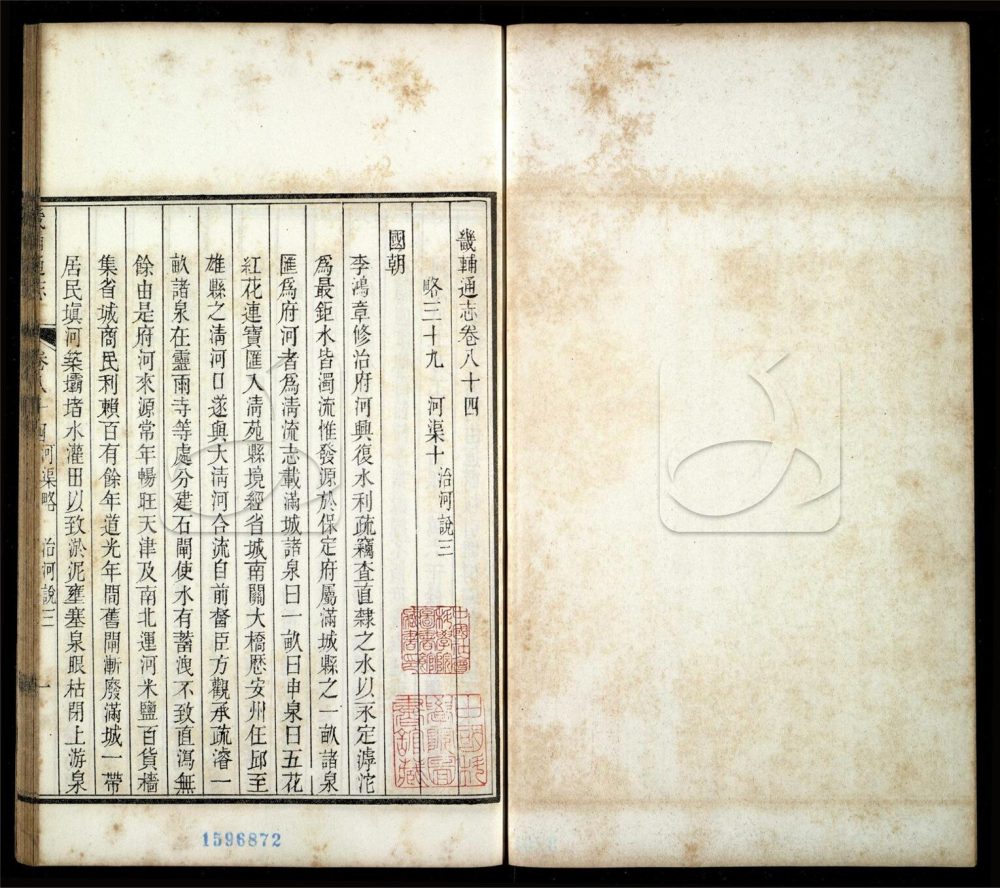 畿輔通志卷八十四
略三十九 河渠十 治河說三
國朝
李鴻章修治府河興復水利疏竊查直隸之水以永定滹沱
爲最鉅水皆濁流惟發源於保定府屬滿城縣之一畝諸泉
匯爲府河者爲清流志載滿城諸泉曰一畝曰申泉曰五花
紅花連寶匯入清苑縣境經省城南關大橋歷安州任邱至
雄縣之清河口遂與大清河合流自前督臣方觀承疏濬一
畝諸泉在靈雨寺等處分建石閘使水有蓄洩不致直瀉無
餘由是府河來源常年暢旺天津及南北運河米鹽百貨檣
集省城商民利賴百有餘年道光年間舊閘漸廢滿城一帶
居民塡河築壩堵水灌田以致淤泥壅塞泉眼枯閉上游泉
畿輔通志 卷八十四 河渠略 治河說三 一
中國社會科學院圖書館藏書印
中國科學院圖書館藏
1596872